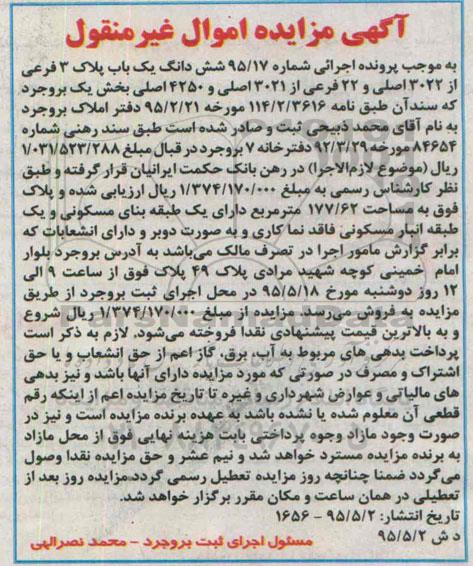 آگهی مزایده اموال غیرمنقول
به موجب پرونده اجرائی شماره ۹۵/۱۷ شش دانگ یک باب پلاک ۳ فرعی
از ۳۰۲۲ اصلی و ۲۲ فرعی از ۳۰۲۱ اصلی و ۴۲۵۰ اصلی بخش یک بروجرد
که سندآن طبق نامه ۱۱۴/۲/۳۶۱۶ مورخه ۹۵/۲/۲۱ دفتر املاک بروجرد
به نام آقای محمد ذبیحی ثبت و صادر شده است طبق سند رهنی شماره
۸۴۶۵۴ مورخه ۹۲/۳/۲۹ دفترخانه ۷ بروجرد در قبال مبلغ ۱/۰۳۱/۵۲۳/۲۸۸
ریال (موضوع لازم‌الاجرا) در رهن بانک حکمت ایرانیان قرار گرفته و طبق
نظر کارشناس رسمی به مبلغ ۱/۳۷۴/۱۷۰/۰۰۰ ریال ارزیابی شده و پلاک
فوق به مساحت ۱۷۷/۶۲ مترمربع دارای یک طبقه بنای مسکونی و یک
طبقه انبار مسکونی فاقد نما کاری و به صورت دوبر و دارای انشعابات که
برابر گزارش مامور اجرا در تصرف مالک می‌باشد به آدرس بروجرد بلوار
امام خمینی کوچه شهید مرادی پلاک ۴۹ پلاک فوق از ساعت ۹ الی
۱۲ روز دوشنبه مورخ ۹۵/۵/۱۸ در محل اجرای ثبت بروجرد از طریق
مزایده به فروش می‌رسد. مزایده از مبلغ ۱/۳۷۴/۱۷۰/۰۰۰ ریال شروع
و به بالاترین قیمت پیشنهادی نقدا فروخته می‌شود. لازم به ذکر است
پرداخت بدهی های مربوط به آب، برق، گاز اعم از حق انشعاب و یا حق
اشتراک و مصرف در صورتی که مورد مزایده دارای آنها باشد و نیز بدهی
های مالیاتی و عوارض شهرداری و غیره تا تاریخ مزایده اعم از اینکه رقم
قطعی آن معلوم شده یا نشده باشد به عهده برنده مزایده است و نیز در
صورت وجود مازاد وجوه پرداختی بابت هزینه نهایی فوق از محل مازاد
به برنده مزایده مسترد خواهد شد و نیم عشر و حق مزایده نقدا وصول
می‌گردد ضمنا چنانچه روز مزایده تعطیل رسمی گردد مزایده روز بعد از
تعطیلی در همان ساعت و مکان مقرر برگزار خواهد شد.
تاریخ انتشار: ۹۵/۵/۲ - ۱۶۵۶
د ش ۹۵/۵/۲
مسئول اجرای ثبت بروجرد - محمد نصرالهی